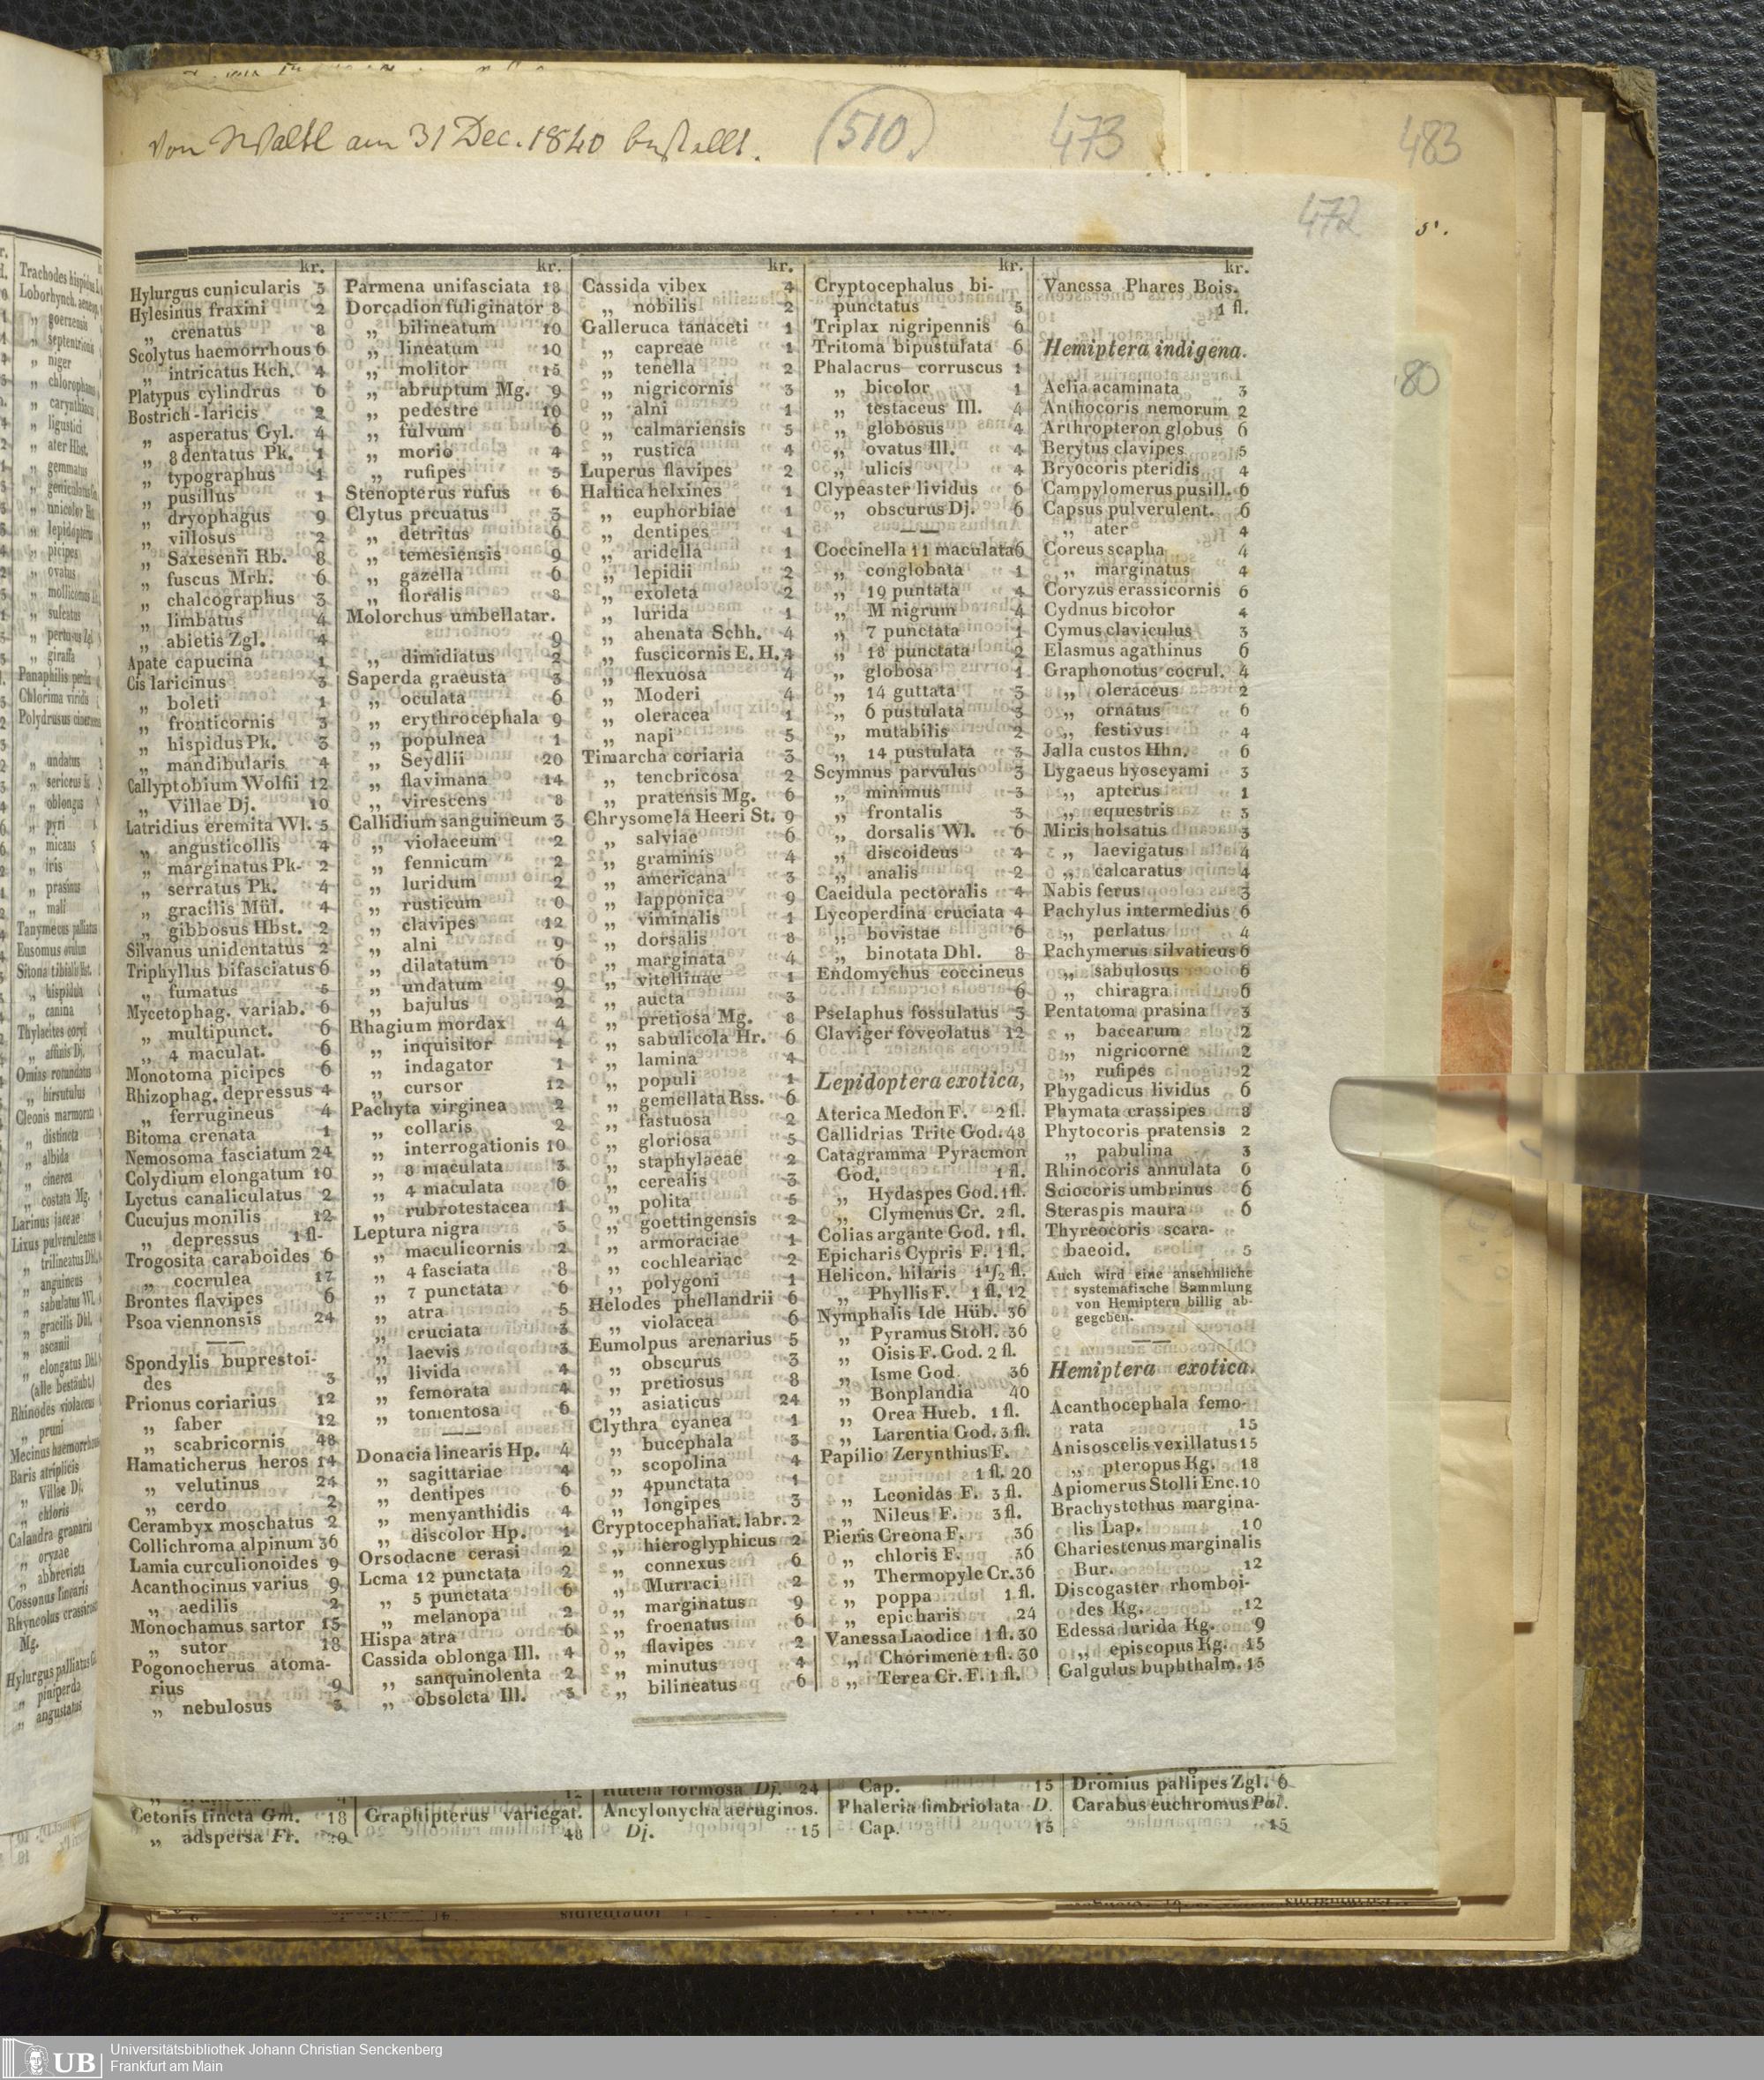 Von Waltl am 31 Dec. 1840 bestellt.
(510)
473
483
472
80
kr.
Hylurgus cunicularis 5
Hylesinus fraxini 2
„ crenatus 8
Scolytus haemorrhous 6
„ intricatus Kch. 4
Platypus cylindrus 6
Bostrich-laricis 2
„ asperatus Gyl. 4
„ 8dentatus Pk. 1
„ typographus 1
„ pusillus 1
„ dryophagus 9
„ villosus 2
„ Saxesenii Rb. 8
„ fuscus Mrh. 6
„ chalcographus 3
„ limbatus 4
„ abietis Zgl. 4
Apate capucina 1
Cis laricinus 3
„ boleti 1
„ fronticornis 3
„ hispidus Pk. 3
„ mandibularis 4
Callyptobium Wolfii 12
„ Villae Dj. 10
Latridius eremita Wl. 5
„ angusticollis 4
„ marginatus Pk- 2
„ serratus Pk. 4
„ gracilis Mül. 4
„ gibbosus Hbst. 2
Silvanus unidentatus 2
Triphyllus bifasciatus 6
„ fumatus 5
Mycetophag. variab. 6
„ multipunct. 6
„ 4 maculat. 6
Monotoma picipes 6
Rhizophag. depressus 4
„ ferrugineus 4
Bitoma crenata 1
Nemosoma fasciatum 24
Colydium elongatum 10
Lyctus canaliculatus 2
Cucujus monilis 12
„ depressus 1 fl-
Trogosita caraboides 6
„ cocrulea 17
Brontes flavipes 6
Psoa viennonsis 24
Spondylis buprestoi-
des 3
Prionus coriarius 12
„ faber 12
„ scabricornis 48
Hamaticherus heros 14
„ velutinus 24
„ cerdo 2
Cerambyx moschatus 2
Collichroma alpinum 36
Lamia curculionoides 9
Acanthocinus varius 9
„ aedilis 2
Monochamus sartor 15
„ sutor 18
Pogonocherus atoma-
rius 9
„ nebulosus 3
kr.
Parmena unifasciata 18
Dorcadion fuliginator 8
„ bilineatum 10
„ lineatum 10
„ molitor 15
„ abruptum Mg. 9
„ pedestre 10
„ fulvum 6
„ morio 4
„ rufipes 5
Stenopterus rufus 6
Clytus prcuatus 3
„ detritus 6
„ temesiensis 9
„ gazella 6
„ floralis 8
Molorchus umbellatar.
9
„ dimidiatus 2
Saperda graeusta 3
„ oculata 6
„ erythrocephala 9
„ populnea 1
„ Seydlii 20
„ flavimana 14
„ virescens 8
Callidium sanguineum 3
„ violaceum 2
„ fennicum 2
„ luridum 2
„ rusticum 0
„ clavipes 12
„ alni 9
„ dilatatum 6
„ undatum 9
„ bajulus 2
Rhagium mordax 4
„ inquisitor 1
„ indagator 1
„ cursor 12
Pachyta virginea 2
„ collaris 2
„ interrogationis 10
„ 8 maculata 3
„ 4 maculata 6
„ rubrotestacea 1
Leptura nigra 3
„ maculicornis 2
„ 4 fasciata 8
„ 7 punctata 6
„ atra 5
„ cruciata 3
„ laevis 3
„ livida 4
„ femorata 4
„ tomentosa 6
Donacia linearis Hp. 4
„ sagittariae 4
„ dentipes 6
„ menyanthidis 4
„ discolor Hp. 1
Orsodacne cerasi 2
Lcma 12 punctata 2
„ 5 punctata 6
„ melanopa 2
Hispa atra 6
Cassida oblonga Ill. 4
„ sanquinolenta 2
„ obsoleta Ill. 3
kr.
Cassida vibex 4
„ nobilis 2
Galleruca tanaceti 1
„ capreae 1
„ tenella 2
„ nigricornis 3
„ alni 1
„ calmariensis 5
„ rustica 4
Luperus flavipes 2
Haltica helxines 1
„ euphorbiae 1
„ dentipes 1
„ aridella 1
„ lepidii 2
„ exoleta 2
„ lurida 1
„ ahenata Schh. 4
„ fuscicornis E. H. 4
„ flexuosa 4
„ Moderi 4
„ oleracea 1
„ napi 5
Timarcha coriaria 3
„ tencbricosa 2
„ pratensis Mg. 6
Chrysomela Heeri St. 9
„ salviae 6
„ graminis 4
„ americana 3
„ lapponica 9
„ viminalis 1
„ dorsalis 8
„ marginata 4
„ vitellinae 1
„ aucta 3
„ pretiosa Mg. 8
„ sabulicola Hr. 6
„ lamina 4
„ populi 1
„ gemellata Rss. 6
„ fastuosa 2
„ gloriosa 5
„ staphylaeae 2
„ cerealis 3
„ polita 5
„ goettingensis 2
„ armoraciae 1
„ cochleariac 2
„ polygoni 1
Helodes phellandrii 6
„ violacea 6
Eumolpus arenarius 5
„ obscurus 3
„ pretiosus 8
„ asiaticus 24
Clythra cyanea 1
„ bucephala 3
„ scopolina 4
„ 4punctata 1
„ longipes 3
Cryptocephaliat. labr. 2
„ hieroglyphicus 2
„ connexus 6
„ Murraci 2
„ marginatus 9
„ froenatus 6
„ flavipes 2
„ minutus 4
„ bilineatus 6
kr.
Cryptocephalus bi-
punctatus 5
Triplax nigripennis 6
Tritoma bipustulata 6
Phalacrus corruscus 1
„ bicolor 1
„ testaceus Ill. 4
„ globosus 4
„ ovatus Ill. 4
„ ulicis 4
Clypeaster lividus 6
„ obscurus Dj. 6
Coccinella 11 maculata 6
„ conglobata 1
„ 19 puntata 4
„ M nigrum 4
„ 7 punctata 1
„ 18 punctata 2
„ globosa 1
„ 14 guttata 3
„ 6 pustulata 3
„ mutabilis 2
„ 14 pustulata 3
Scymnus parvulus 3
„ minimus 3
„ frontalis 3
„ dorsalis Wl. 6
„ discoideus 4
„ analis 2
Cacidula pectoralis 4
Lycoperdina cruciata 4
„ bovistae 6
„ binotata Dhl. 8
Endomychus coccineus
6
Pselaphus fossulatus 3
Claviger foveolatus 12
Lepidoptera exotica,
Aterica Medon F. 2 fl.
Callidrias Trite God. 48
Catagramma Pyracmon
God. 1 fl.
„ Hydaspes God. 1 fl.
„ Clymenus Cr. 2 fl.
Colias argante God. 1 fl.
Epicharis Cypris F. 1 fl.
Helicon. hilaris 1½ fl.
„ Phyllis F. 1 fl. 12
Nymphalis Ide Hüb. 36
„ Pyramus Stoll. 36
„ Oisis F. God. 2 fl.
„ Isme God 36
„ Bonplandia 40
„ Orea Hueb. 1 fl.
„ Larentia God. 3 fl.
Papilio Zerynthius F.
1 fl. 20
„ Leonidas F. 3 fl.
„ Nileus F. 3 fl.
Pieris Creona F. 36
„ chloris F. 36
„ Thermopyle Cr. 36
„ poppa 1 fl.
„ epicharis 24
Vanessa Laodice 1 fl. 30
„ Chorimene 1 fl. 30
„ Terea Cr. F. 1 fl.
kr.
Vanessa Phares Bois.
1 fl.
Hemiptera indigena.
Aelia acaminata 3
Anthocoris nemorum 2
Arthropteron globus 6
Berytus clavipes 5
Bryocoris pteridis 4
Campylomerus pusill. 6
Capsus pulverulent. 6
„ ater 4
Coreus scapha 4
„ marginatus 4
Coryzus erassicornis 6
Cydnus bicolor 4
Cymus claviculus 3
Elasmus agathinus 6
Graphonotus cocrul. 4
„ oleraceus 2
„ ornatus 6
„ festivus 4
Jalla custos Hhn. 6
Lygaeus hyoseyami 3
„ apterus 1
„ equestris 3
Miris holsatus 3
„ laevigatus 4
„ calcaratus 4
Nabis ferus 3
Pachylus intermedius 6
„ perlatus 4
Pachymerus silvaticus 6
„ sabulosus 6
„ chiragra 6
Pentatoma prasina 3
„ baccarum 2
„ nigricorne 2
„ rufipes 2
Phygadicus lividus 6
Phymata crassipes 8
Phytocoris pratensis 2
„ pabulina 3
Rhinocoris annulata 6
Sciocoris umbrinus 6
Steraspis maura 6
Thyreocoris scara-
baeoid. 5
Auch wird eine ansehnliche
systematische Sammlung
von Hemiptern billig ab-
gegeben.
Hemiptera exotica.
Acanthocephala femo-
rata 15
Anisoscelis vexillatus 15
„ pteropus Kg. 18
Apiomerus Stolli Enc. 10
Brachystethus margina-
lis Lap. 10
Chariestenus marginalis
Bur. 12
Discogaster rhomboi-
des Kg. 12
Edessa lurida Kg. 9
„ episcopus Kg. 15
Galgulus buphthalm. 15
Cetonis tincta Gm. 18
„ adspersa Fr. 20
Graphipterus variegat.
48
Rutela formosa Dj. 24
Ancylonycha aeruginos.
Dj. 15
Cap. 15
Phaleria fimbriolata D.
Cap. 15
Dromius pallipes Zgl. 6
Carabus euchromus Pal.
15
Trachodes hispidus
Loborhynch.
„ goerzensis
„ septentrionis
„ niger
„ chlorophanus
„ carynthiacus
„ ligustici
„ ater Hbst.
„ gemmatus
„ geniculatus
„ unicolor
„ lepidopterus
„ picipes
„ ovatus
„ mollicomus
„ sulcatus
„ pertusus Zgl.
„ giraffa
Panaphilis
Chlorima viridis
Polydrusus
„ undatus
„ sericeus
„ oblongus
„ pyri
„ micans
„ iris
„ prasinus
„ mali
Tanymecus palliatus
Eusomus ovulum
Sitona tibialis Hbt.
„ hispidus
„ canina
Thylacites coryli
„ affinis Dj.
Omias rotundatus
„ hirsutulus
Cleonis marmorata
„ distincta
„ albida
„ cinerea
„ costata Mg.
Larinus jaceae
Lixus pulverulentus
„ trilineatus Dhl.
„ anguineus
„ sabulatus Wl.
„ gracilis Dhl.
„ ascanii
„ elongatus Dhl.
(alle bestäubt)
Rhinodes violaceus
„ pruni
Mecinus
Baris atriplicis
„ Villae Dj.
„ chloris
Calandra granaria
„ oryzae
„ abbreviata
Cossonus linearis
Rhyncolus
Mg.
Hylurgus palliatus
„ piniperda
„ angustatus
UB
Universitätsbibliothek Johann Christian Senckenberg
Frankfurt am Main